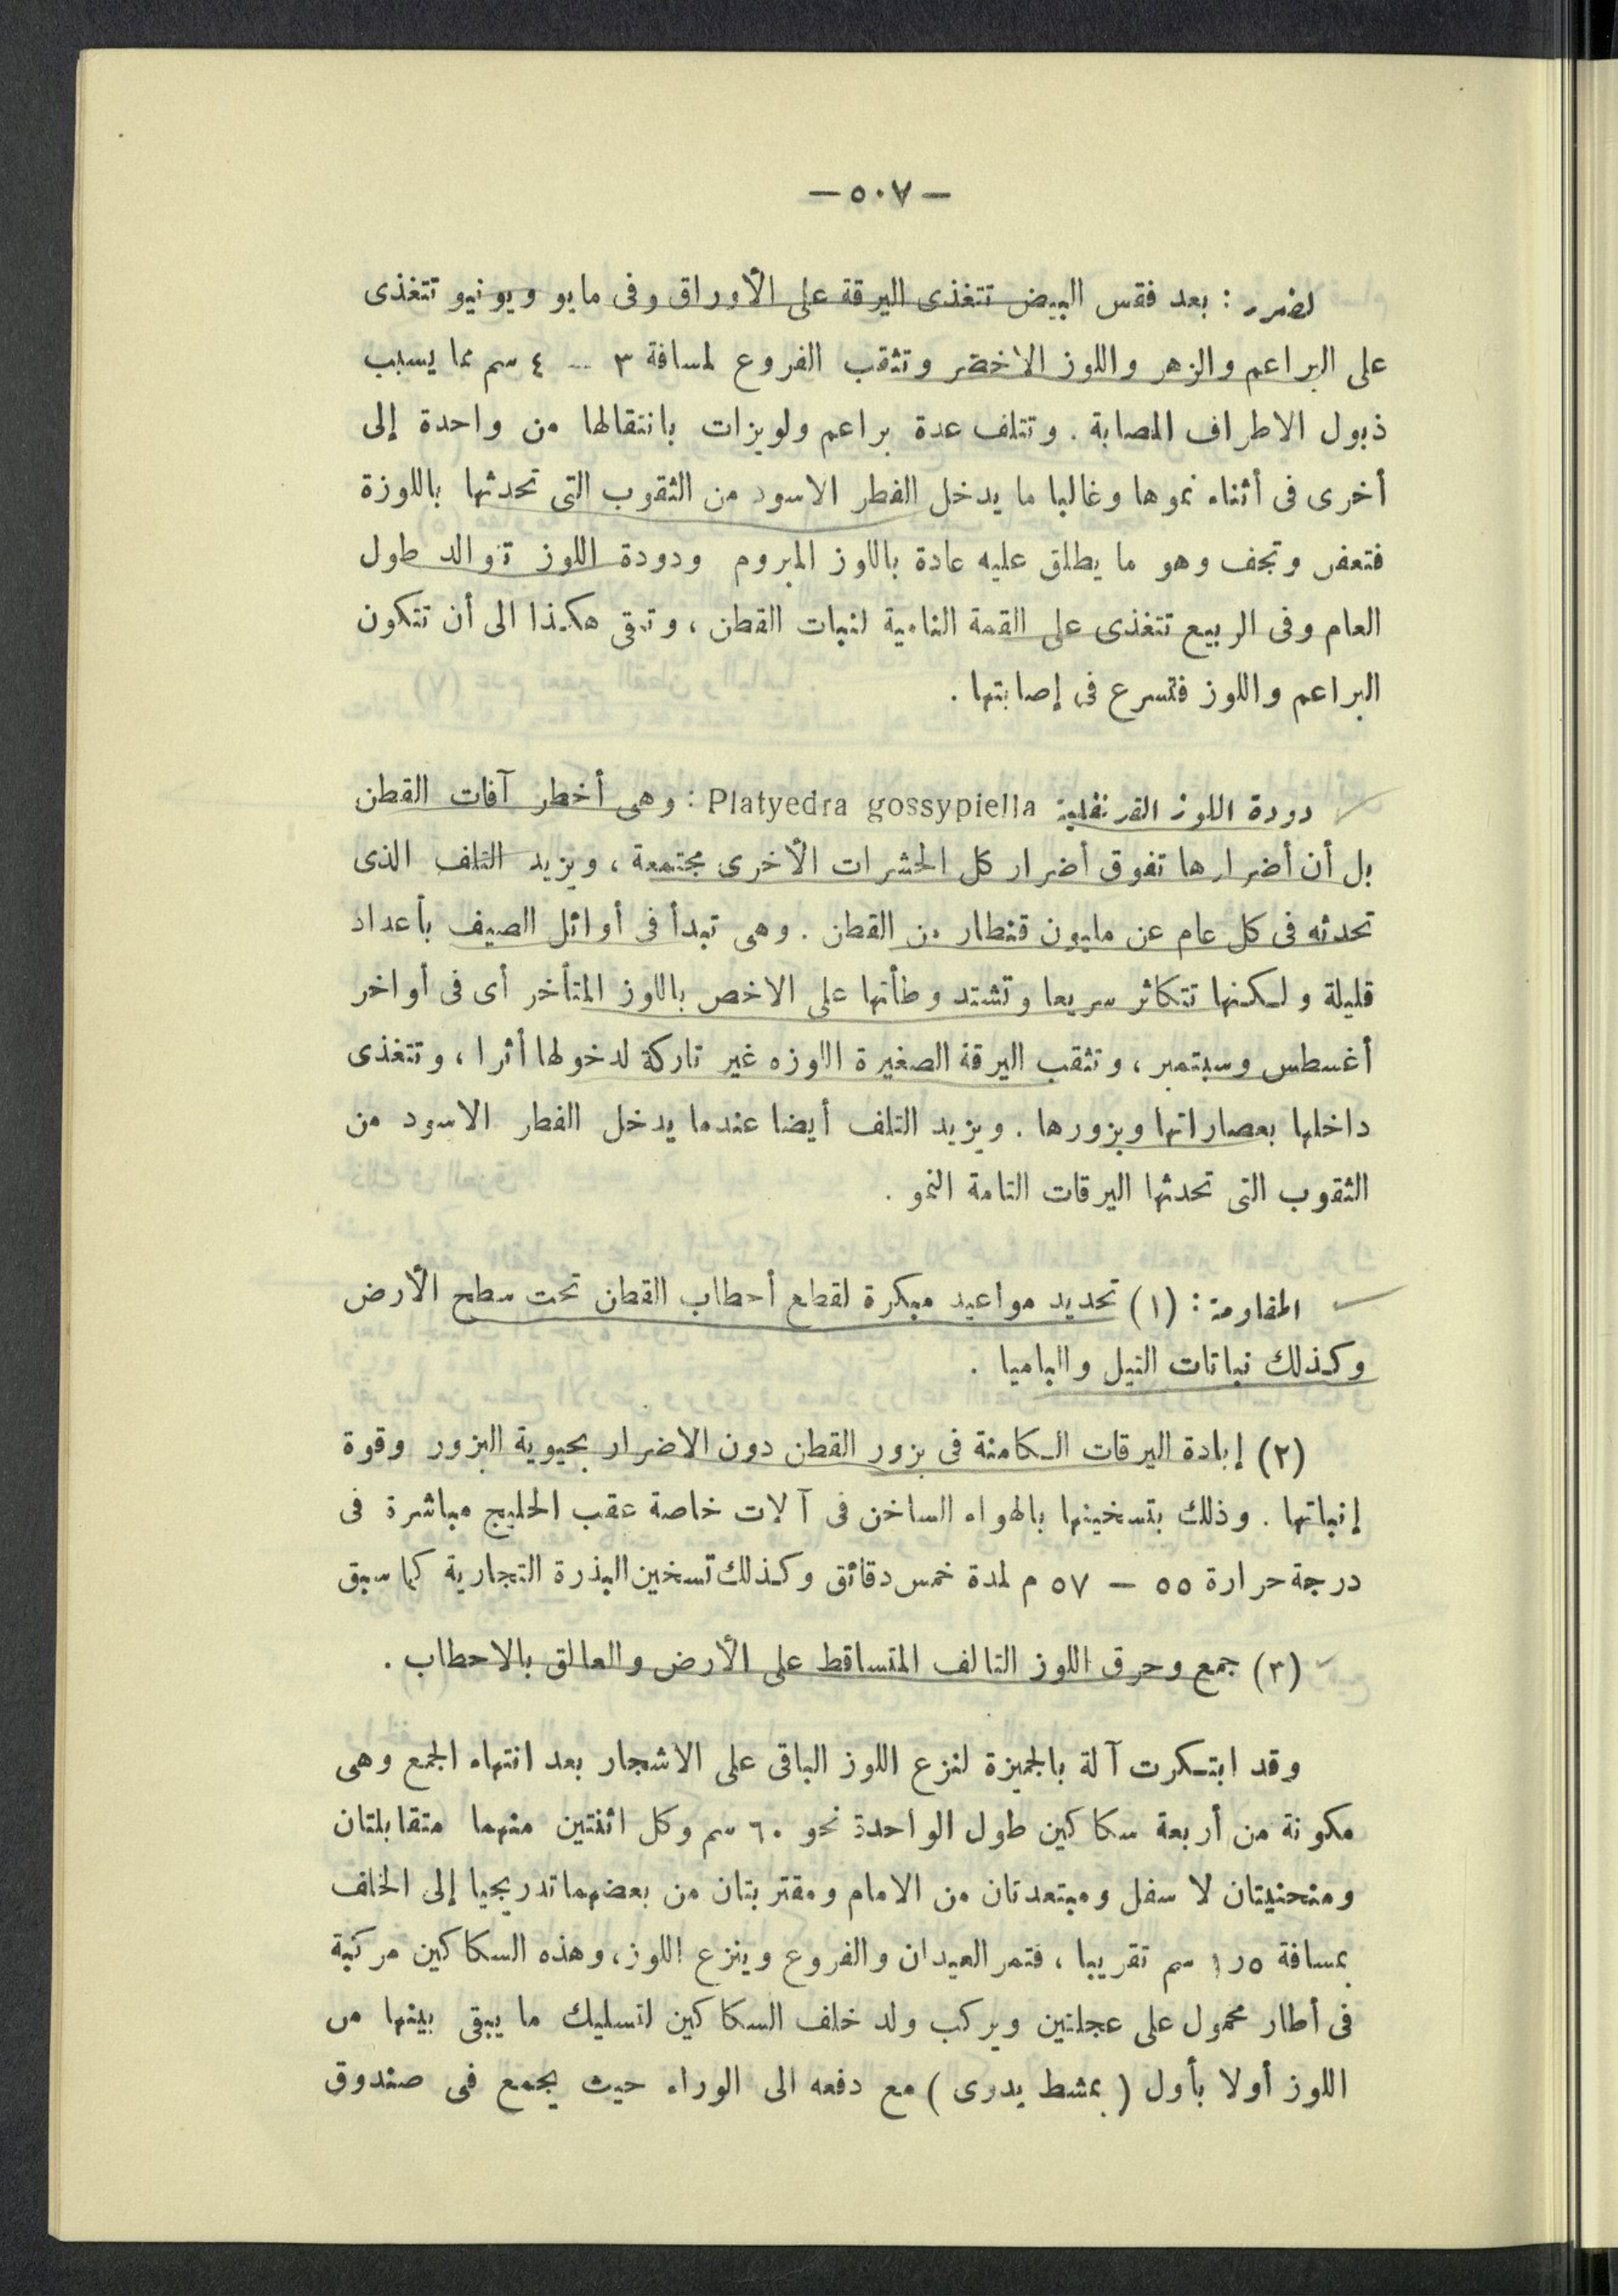 — ٥٠٧ —
لضرر : بعد فقس البيض تتغذى اليرقة على الأوراق وفى مايو ويونيو تتغذى
على البراعم والزهر واللوز الاخضر وتثقب الفروع لمسافة ٣ — ٤ سم مما يسبب
ذبول الاطراف المصابة . وتتلف عدة براعم ولويزات بانتقالها من واحدة إلى
أخرى فى أثناء نموها وغالبا ما يدخل الفطر الاسود من الثقوب التى تحدثها باللوزة
فتعفن وتجف وهو ما يطلق عليه عادة باللوز المبروم ودودة اللوز توالد طول
العام وفى الربيع تتغذى على القمة النامية لنبات القطن ، وتبقى هكذا الى أن تتكون
البراعم واللوز فتسرع فى إصابتها .
دودة اللوز القرنفلية Platyedra gossypiella : وهى أخطر آفات القطن
بل أن أضرارها تفوق أضرار كل الحشرات الأخرى مجتمعة ، ويزيد التلف الذى
تحدثه فى كل عام عن مليون قنطار من القطن . وهى تبدأ فى أوائل الصيف بأعداد
قليلة ولكنها تتكاثر سريعا وتشتد وطأتها على الاخص باللوز المتأخر أى فى أواخر
أغسطس وسبتمبر ، وتثقب اليرقة الصغيرة اللوزه غير تاركة لدخولها أثرا ، وتتغذى
داخلها بعصاراتها وبزورها . ويزيد التلف أيضا عندما يدخل الفطر الاسود من
الثقوب التى تحدثها اليرقات التامة النمو .
المقاومة : (١) تحديد مواعيد مبكرة لقطع أحطاب القطن تحت سطح الأرض
وكذلك نباتات التيل والباميا .
(٢) إبادة اليرقات الكامنة فى بزور القطن دون الاضرار بحيوية البزور وقوة
إنباتها . وذلك بتسخينها بالهواء الساخن فى آلات خاصة عقب الحليج مباشرة فى
درجة حرارة ٥٥ — ٥٧ م لمدة خمس دقائق وكذلك تسخين البذرة التجارية كما سبق
(٣) جمع وحرق اللوز التالف المتساقط على الأرض والعالق بالاحطاب .
وقد ابتكرت آلة بالجيزة لنزع اللوز الباقى على الاشجار بعد انتهاء الجمع وهى
مكونة من أربعة سكاكين طول الواحدة نحو ٦٠ سم وكل اثنتين منهما متقابلتان
ومنحنيتان لا سفل ومبتعدتان من الامام ومقتربتان من بعضهما تدريجيا إلى الخلف
بمسافة ٥ر١ سم تقريبا ، فتمر العيدان والفروع وينزع اللوز ، وهذه السكاكين مركبة
فى أطار محمول على عجلتين ويركب ولد خلف السكاكين لتسليك ما يبقى بينها من
اللوز أولا بأول ( بمشط يدرى ) مع دفعه الى الوراء حيث يجمع فى صندوق